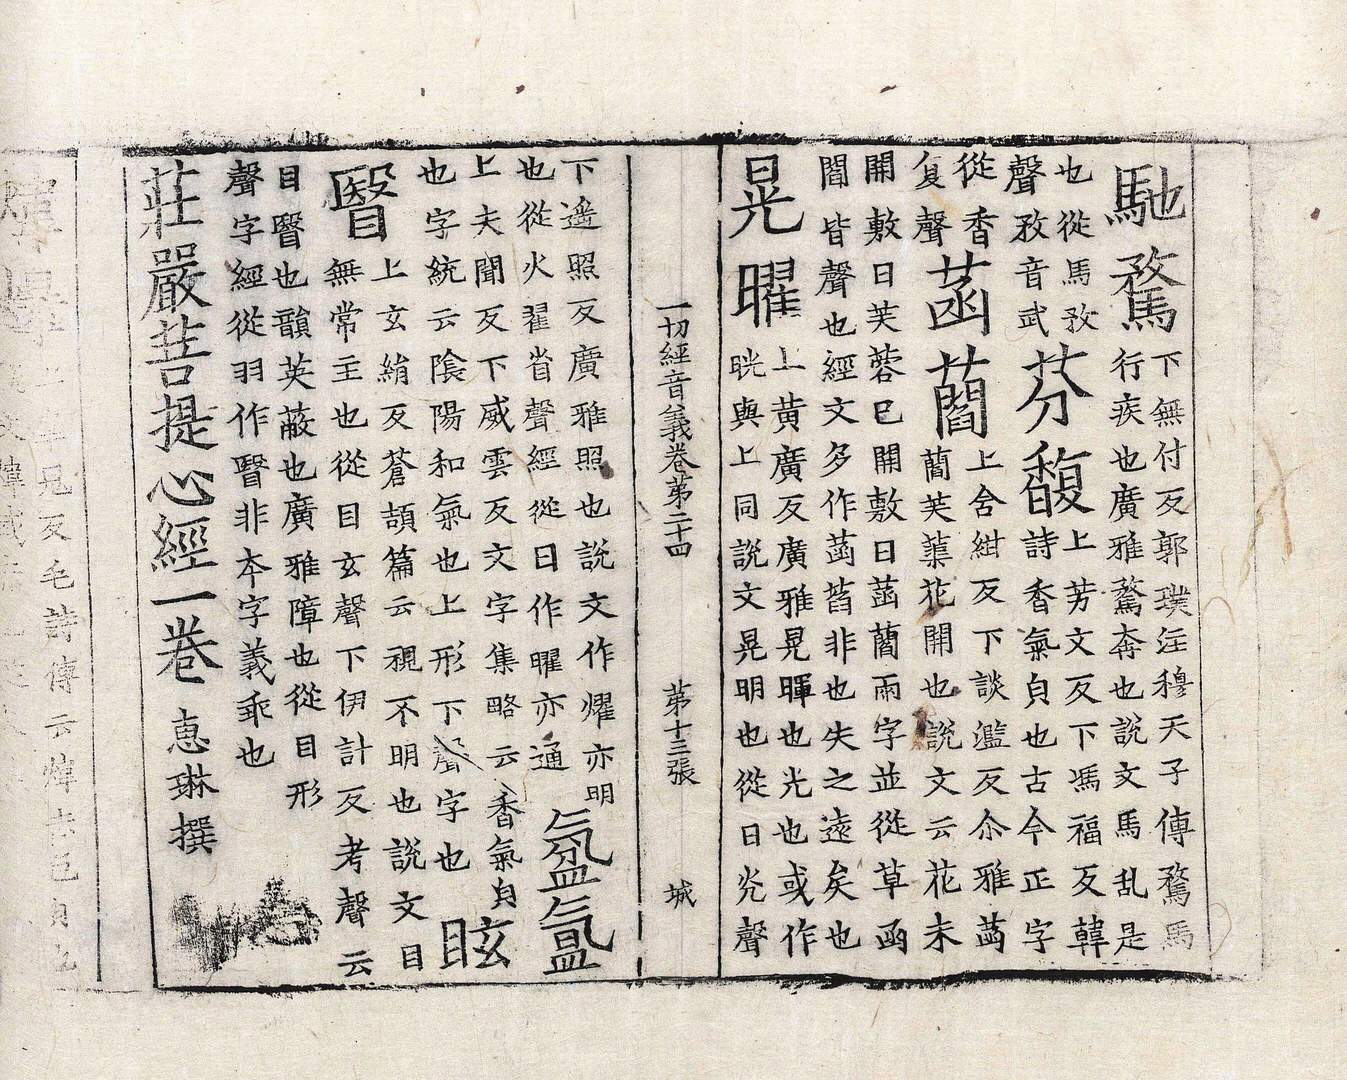 馳騖
下無付反郭璞注穆天子傳騖馬
行疾也廣雅騖奔也說文馬乱是
也從馬敄
聲敄音武
芬馥
上芳文反下馮福反韓
詩香氣皃也古今正字
從香
复聲
菡藺
上含紺反下談濫反尒雅菡
藺芙蕖花開也說文云花未
開敷曰芙蓉已開敷曰菡藺兩字並從草函
閻皆聲也經文多作菡萏非也失之遠矣也
晃曜
上黃廣反廣雅晃暉也光也或作
晄與上同說文晃明也從日光聲
一切經音義卷第二十四 第十三張 城
下遥照反廣雅照也說文作燿亦明
也從火翟省聲經從日作曜亦通
氛氳
上夫聞反下威雲反文字集略云香氣皃
也字統云陰陽和氣也上形下聲字也
眩瞖
上玄絹反蒼頡篇云視不明也說文目
無常主也從目玄聲下伊計反考聲云
目瞖也韻英蔽也廣雅障也從目形
聲字經從羽作瞖非本字義乖也
莊嚴菩提心經一卷 惠琳撰
于鬼反毛詩傳云煒赤色皃也